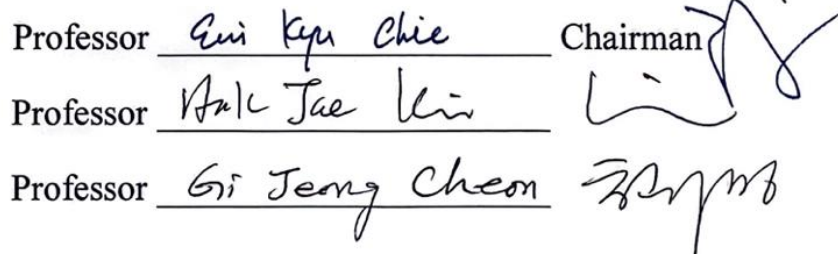 Professor Eui Kyu Chie Chairman
Professor Hak Jae Kim
Professor Gi Jeong Cheon